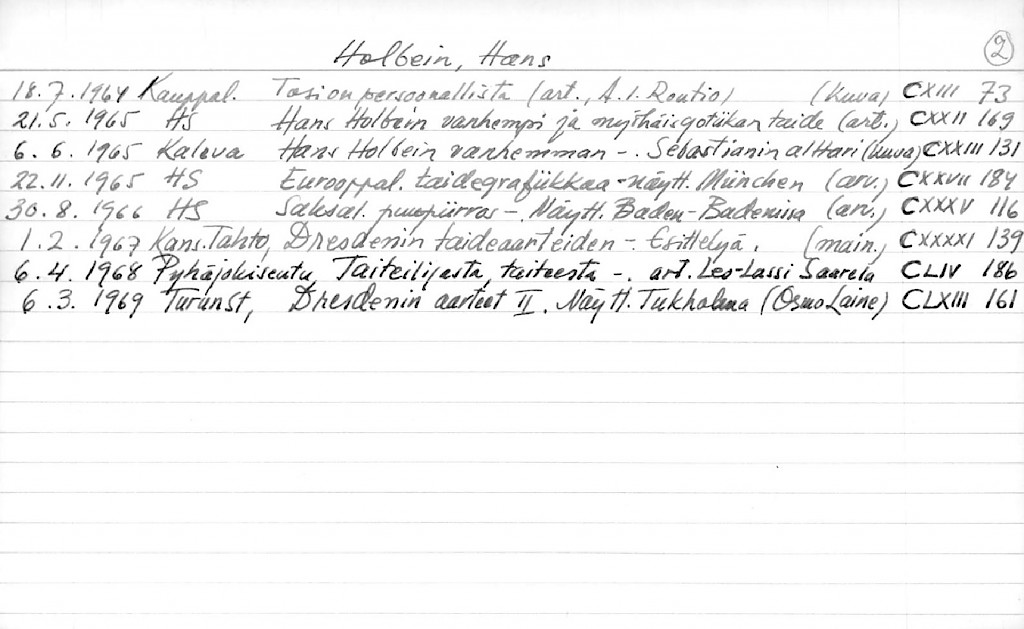 2
Holbein, Hans
18.7.1964 Kauppal. Tosi on persoonallista (art., A.I. Routio) (kuva) CXIII 73
21.5.1965 HS Hans Holbein vanhempi ja myöhäisgotiikan taide (art.) CXXII 169
6.6.1965 Kaleva Hans Holbein vanhemman -. Sebastianin alttari (kuva) CXXIII 131
22.11.1965 HS Eurooppal. taidegrafiikkaa -näytt. München (arv.) CXXVII 184
30.8.1966 HS Saksal. puupiirros -. Näytt. Baden-Badenissa (arv.) CXXXV 116
1.2.1967 Kans.Tahto, Dresdenin taideaarteiden -. Esittelyä. (main.) CXXXXI 139
6.4.1968 Pyhäjokiseutu, Taiteilijasta, taiteesta -. art. Leo-Lassi Saarela CLIV 186
6.3.1969 TurunSt, Dresdenin aarteet II. Näytt. Tukholma (Osmo Laine) CLXIII 161